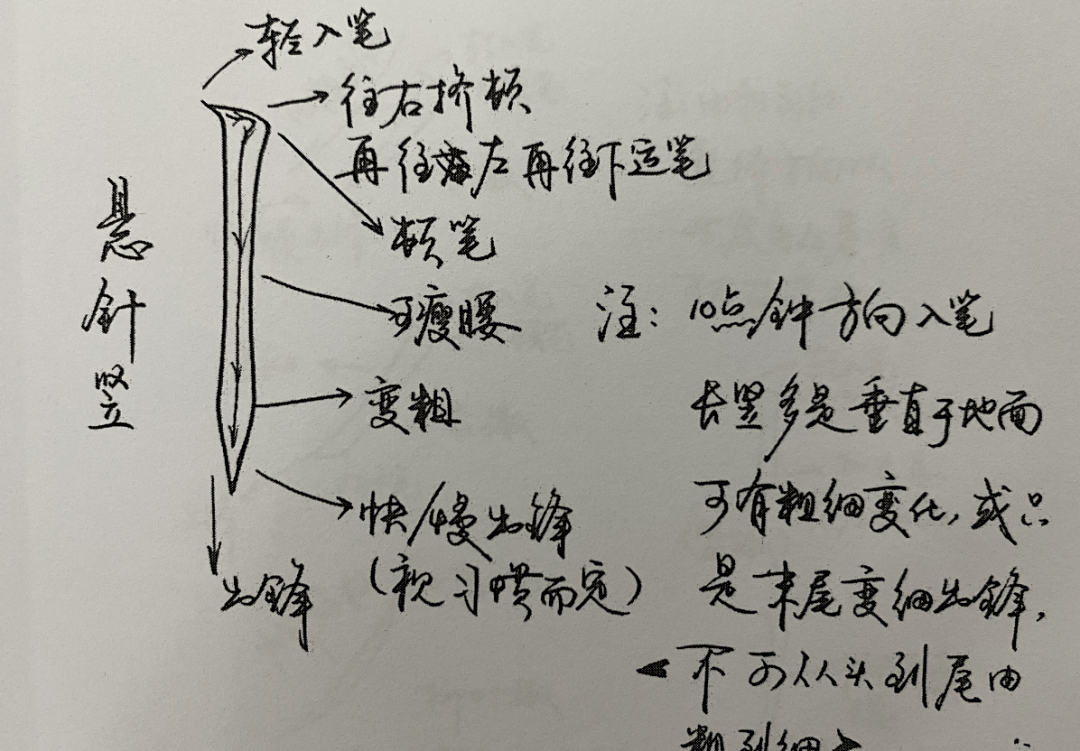 悬针竖
轻入笔
往右挤顿
再往左再往下运笔
顿笔
可瘦腰
变粗
快/慢出锋
(视习惯而定)
出锋
注: 10点钟方向入笔
长竖多是垂直于地面
可有粗细变化, 或只
是末尾变细出锋,
不可从头到尾由
粗到细